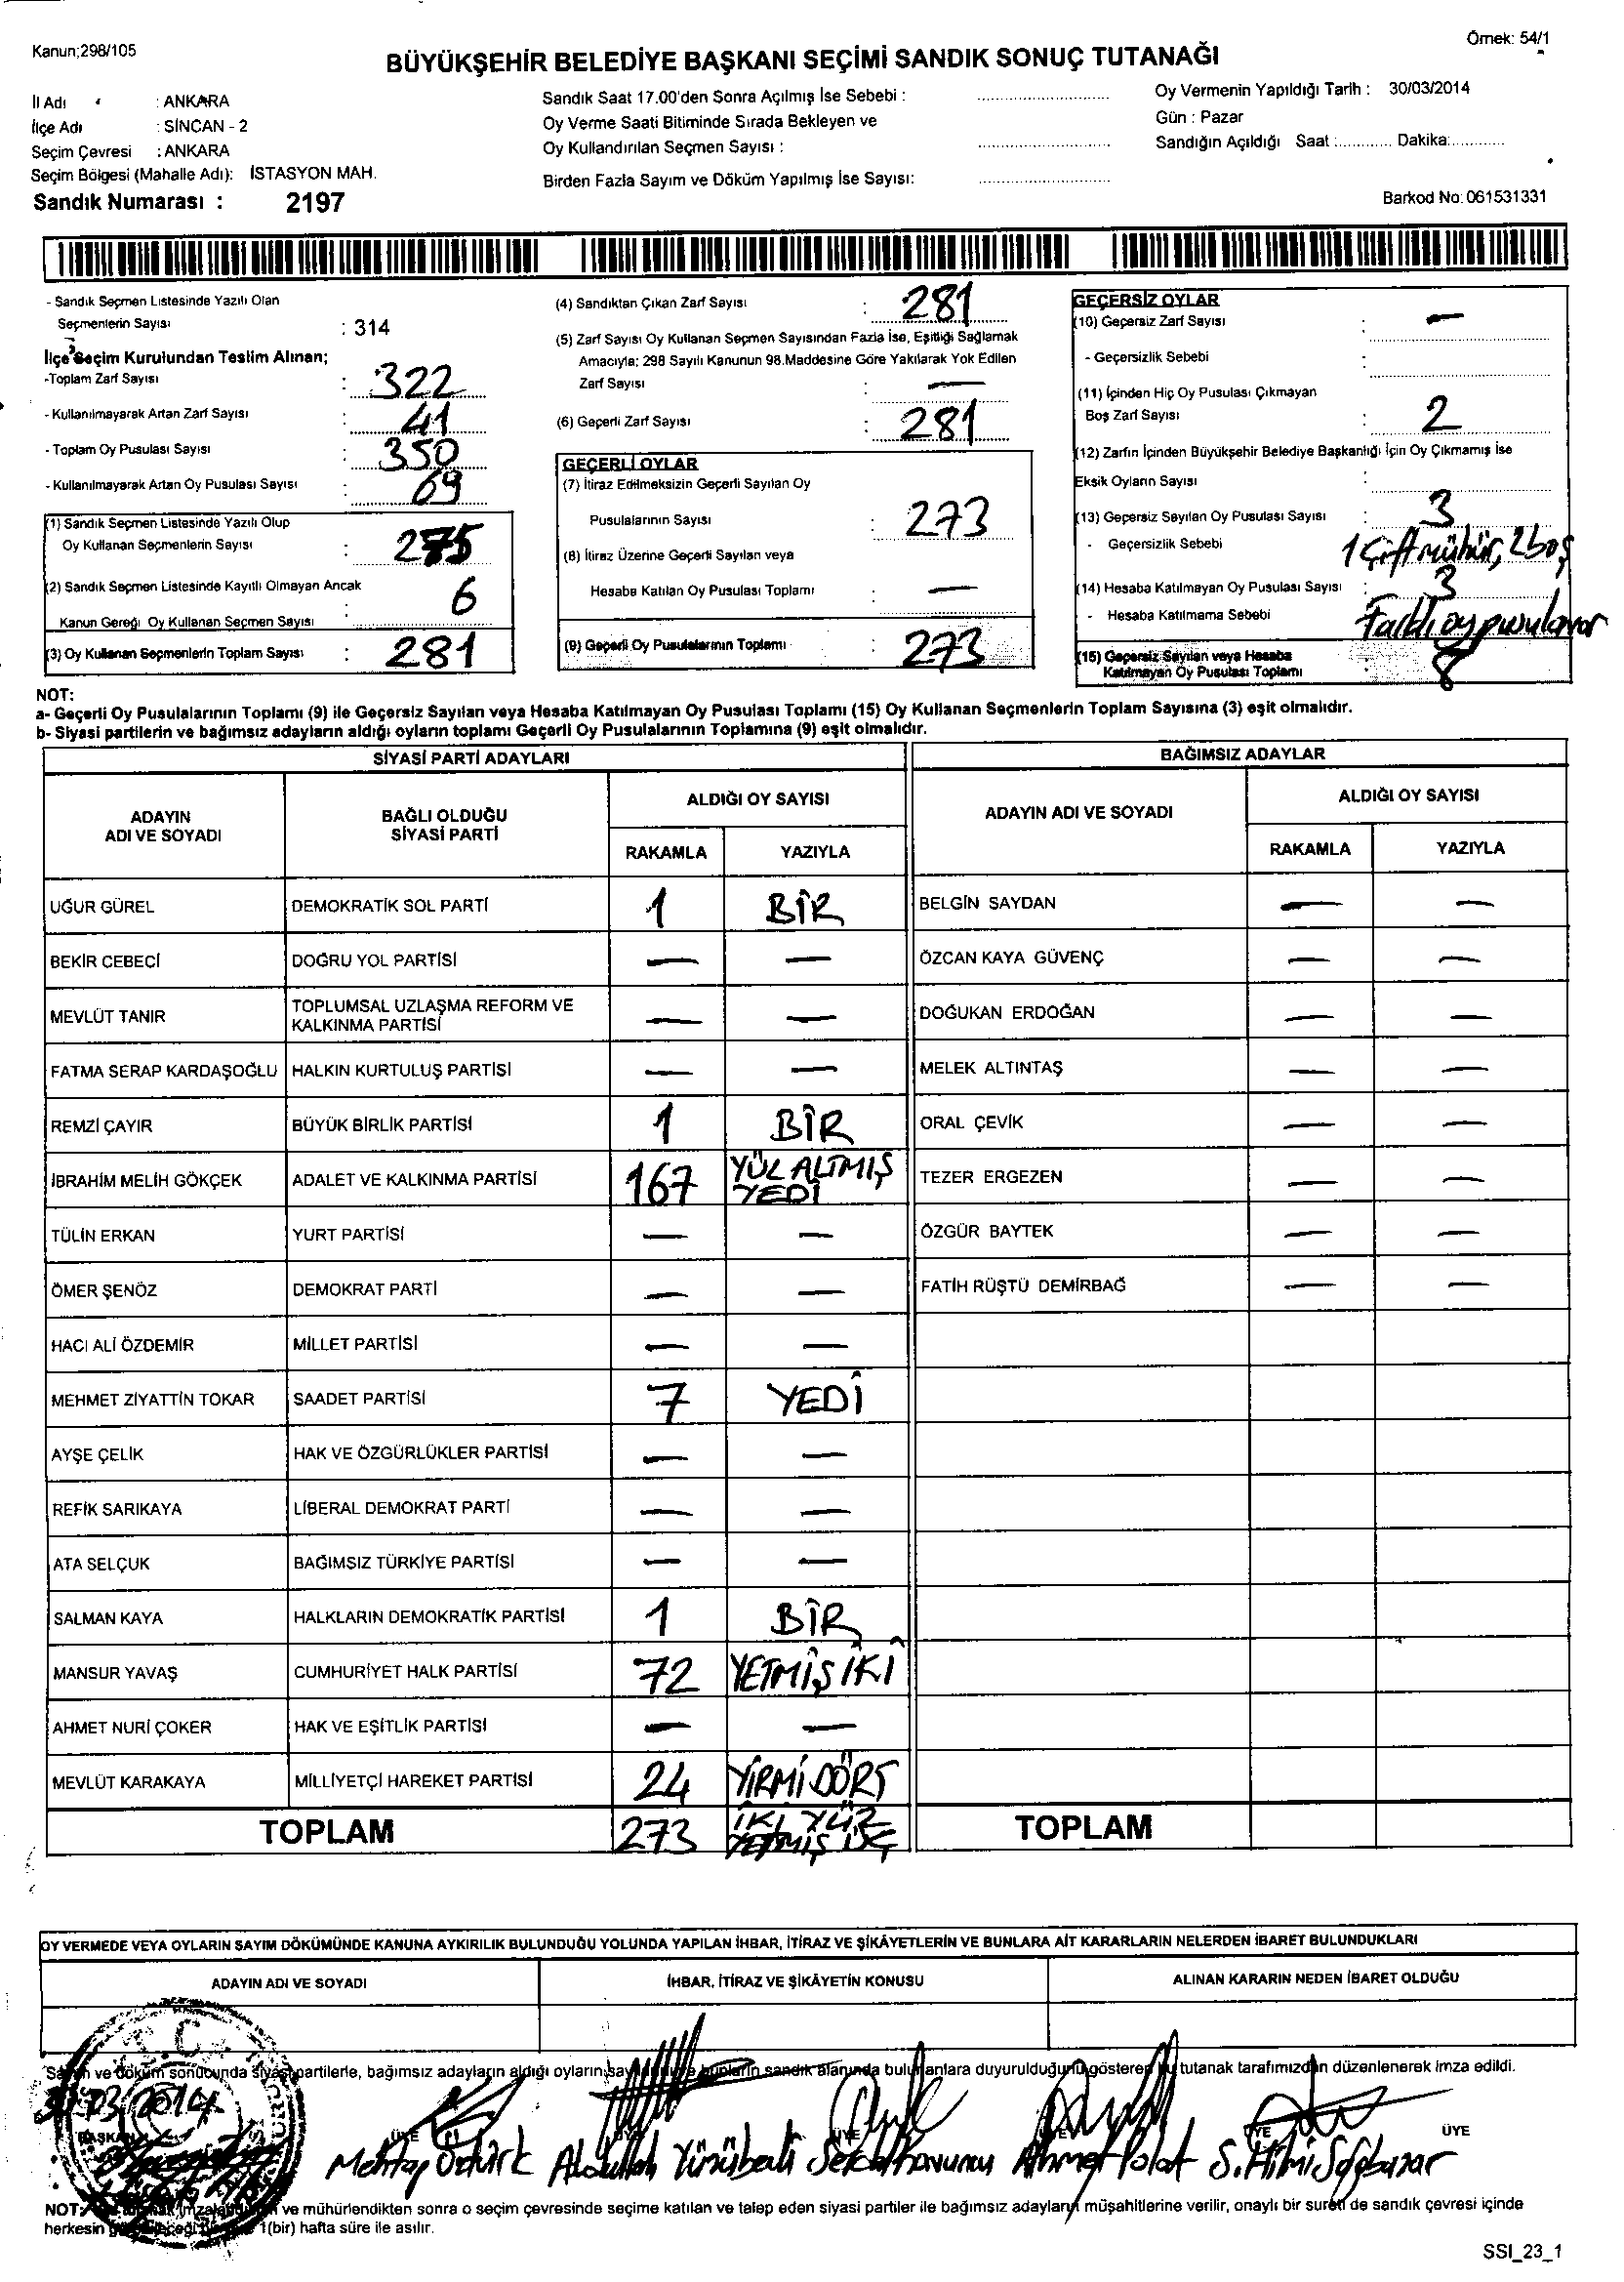 Kanun;298/105
Örnek: 54/1
BÜYÜKŞEHİR BELEDİYE BAŞKANI SEÇİMİ SANDIK SONUÇ TUTANAĞI
İl Adı : ANKARA
İlçe Adı : SİNCAN - 2
Seçim Çevresi : ANKARA
Seçim Bölgesi (Mahalle Adı): İSTASYON MAH.
Sandık Numarası : 2197
Sandık Saat 17.00'den Sonra Açılmış İse Sebebi :
Oy Verme Saati Bitiminde Sırada Bekleyen ve
Oy Kullandırılan Seçmen Sayısı :
Birden Fazla Sayım ve Döküm Yapılmış İse Sayısı:
Oy Vermenin Yapıldığı Tarih : 30/03/2014
Gün : Pazar
Sandığın Açıldığı Saat :............ Dakika:............
Barkod No: 061531331
- Sandık Seçmen Listesinde Yazılı Olan
Seçmenlerin Sayısı : 314
İlçe Seçim Kurulundan Teslim Alınan;
-Toplam Zarf Sayısı : 322
- Kullanılmayarak Artan Zarf Sayısı : 41
- Toplam Oy Pusulası Sayısı : 350
- Kullanılmayarak Artan Oy Pusulası Sayısı : 69
(1) Sandık Seçmen Listesinde Yazılı Olup
Oy Kullanan Seçmenlerin Sayısı : 275
(2) Sandık Seçmen Listesinde Kayıtlı Olmayan Ancak
Kanun Gereği Oy Kullanan Seçmen Sayısı : 6
(3) Oy Kullanan Seçmenlerin Toplam Sayısı : 281
(4) Sandıktan Çıkan Zarf Sayısı : 281
(5) Zarf Sayısı Oy Kullanan Seçmen Sayısından Fazla İse, Eşitliği Sağlamak
Amacıyla; 298 Sayılı Kanunun 98.Maddesine Göre Yakılarak Yok Edilen
Zarf Sayısı : —
(6) Geçerli Zarf Sayısı : 281
GEÇERLİ OYLAR
(7) İtiraz Edilmeksizin Geçerli Sayılan Oy
Pusulalarının Sayısı : 273
(8) İtiraz Üzerine Geçerli Sayılan veya
Hesaba Katılan Oy Pusulası Toplamı : —
(9) Geçerli Oy Pusulalarının Toplamı : 273
GEÇERSİZ OYLAR
(10) Geçersiz Zarf Sayısı : —
- Geçersizlik Sebebi :
(11) İçinden Hiç Oy Pusulası Çıkmayan
Boş Zarf Sayısı : 2
(12) Zarfın İçinden Büyükşehir Belediye Başkanlığı İçin Oy Çıkmamış İse
Eksik Oyların Sayısı :
(13) Geçersiz Sayılan Oy Pusulası Sayısı : 3
- Geçersizlik Sebebi 1 Çift mühür, 2 boş
(14) Hesaba Katılmayan Oy Pusulası Sayısı : 3
- Hesaba Katılmama Sebebi Farklı oy pusulaları
(15) Geçersiz Sayılan veya Hesaba
Katılmayan Oy Pusulası Toplamı : 8
NOT:
a- Geçerli Oy Pusulalarının Toplamı (9) ile Geçersiz Sayılan veya Hesaba Katılmayan Oy Pusulası Toplamı (15) Oy Kullanan Seçmenlerin Toplam Sayısına (3) eşit olmalıdır.
b- Siyasi partilerin ve bağımsız adayların aldığı oyların toplamı Geçerli Oy Pusulalarının Toplamına (9) eşit olmalıdır.
SİYASİ PARTİ ADAYLARI
ADAYIN ADI VE SOYADI BAĞLI OLDUĞU SİYASİ PARTİ ALDIĞI OY SAYISI
RAKAMLA YAZIYLA
UĞUR GÜREL DEMOKRATİK SOL PARTİ 1 BİR
BEKİR CEBECİ DOĞRU YOL PARTİSİ — —
MEVLÜT TANIR TOPLUMSAL UZLAŞMA REFORM VE KALKINMA PARTİSİ — —
FATMA SERAP KARDAŞOĞLU HALKIN KURTULUŞ PARTİSİ — —
REMZİ ÇAYIR BÜYÜK BİRLİK PARTİSİ 1 BİR
İBRAHİM MELİH GÖKÇEK ADALET VE KALKINMA PARTİSİ 167 YÜZ ALTMIŞ YEDİ
TÜLİN ERKAN YURT PARTİSİ — —
ÖMER ŞENÖZ DEMOKRAT PARTİ — —
HACI ALİ ÖZDEMİR MİLLET PARTİSİ — —
MEHMET ZİYATTİN TOKAR SAADET PARTİSİ 7 YEDİ
AYŞE ÇELİK HAK VE ÖZGÜRLÜKLER PARTİSİ — —
REFİK SARIKAYA LİBERAL DEMOKRAT PARTİ — —
ATA SELÇUK BAĞIMSIZ TÜRKİYE PARTİSİ — —
SALMAN KAYA HALKLARIN DEMOKRATİK PARTİSİ 1 BİR
MANSUR YAVAŞ CUMHURİYET HALK PARTİSİ 72 YETMİŞ İKİ
AHMET NURİ ÇOKER HAK VE EŞİTLİK PARTİSİ — —
MEVLÜT KARAKAYA MİLLİYETÇİ HAREKET PARTİSİ 24 YİRMİ DÖRT
TOPLAM 273 İKİ YÜZ YETMİŞ ÜÇ
BAĞIMSIZ ADAYLAR
ADAYIN ADI VE SOYADI ALDIĞI OY SAYISI
RAKAMLA YAZIYLA
BELGİN SAYDAN — —
ÖZCAN KAYA GÜVENÇ — —
DOĞUKAN ERDOĞAN — —
MELEK ALTINTAŞ — —
ORAL ÇEVİK — —
TEZER ERGEZEN — —
ÖZGÜR BAYTEK — —
FATİH RÜŞTÜ DEMİRBAĞ — —
TOPLAM
OY VERMEDE VEYA OYLARIN SAYIM DÖKÜMÜNDE KANUNA AYKIRILIK BULUNDUĞU YOLUNDA YAPILAN İHBAR, İTİRAZ VE ŞİKÂYETLERİN VE BUNLARA AİT KARARLARIN NELERDEN İBARET BULUNDUKLARI
ADAYIN ADI VE SOYADI İHBAR, İTİRAZ VE ŞİKÂYETİN KONUSU ALINAN KARARIN NEDEN İBARET OLDUĞU
T.C.
ve döküm sonucunda siyasi partilerle, bağımsız adayların aldığı oyların bunların sandık alanında bulunanlara duyurulduğunu gösteren bu tutanak tarafımızdan düzenlenerek imza edildi.
BAŞKAN ÜYE ÜYE ÜYE ÜYE ÜYE
Mehtap Öztürk Abdullah Ahmet Polat
NOT: ve mühürlendikten sonra o seçim çevresinde seçime katılan ve talep eden siyasi partiler ile bağımsız adayların müşahitlerine verilir, onaylı bir sureti de sandık çevresi içinde
herkesin 1(bir) hafta süre ile asılır.
SSI_23_1